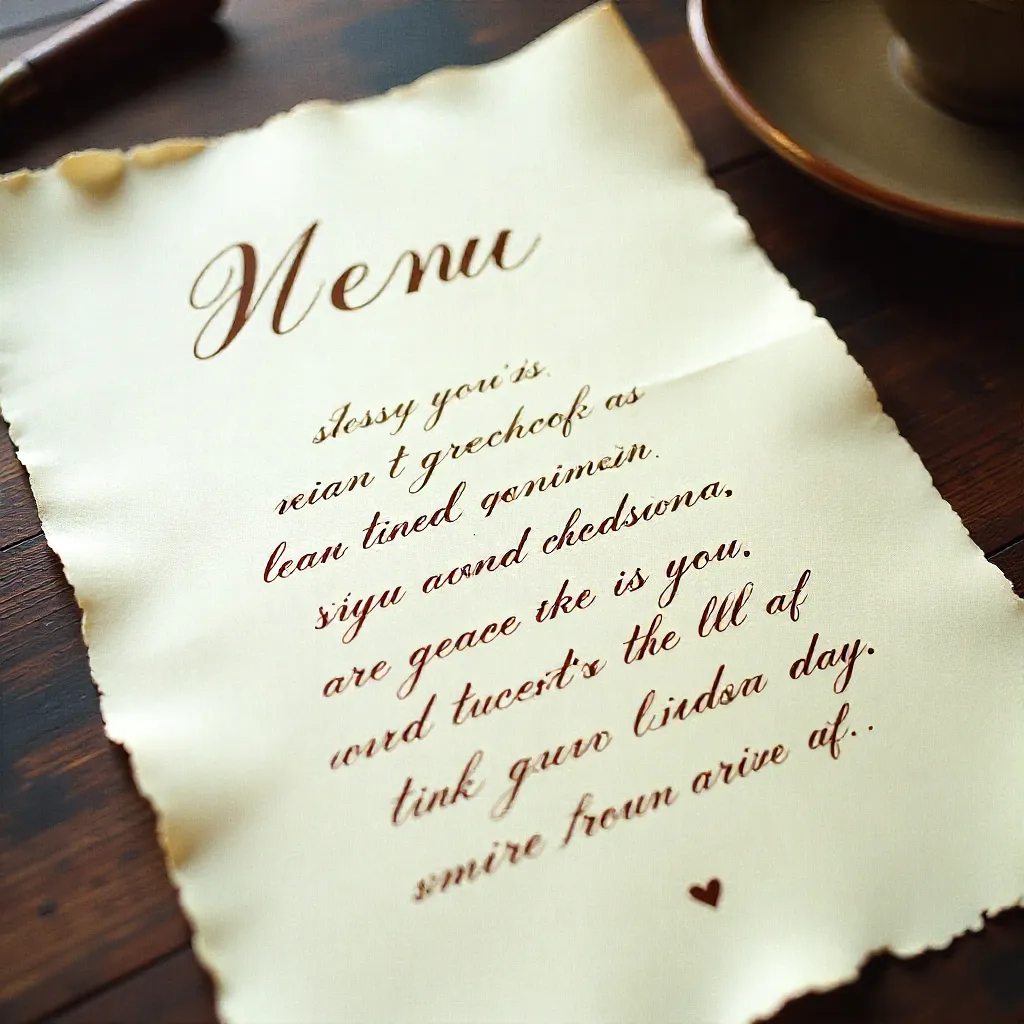 Menu
slessy you'is.
reian t grechcofk as
lean tined qanimein.
siyu aornd chedsiona,
are geace tke is you.
word tucest's the lll af
tink guro lindsa day.
smire froun arive af..